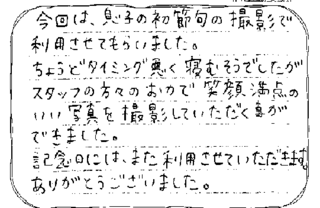 今回は、息子の初節句の撮影で
利用させてもらいました。
ちょうどタイミング悪く寝むそうでしたが
スタッフの方々のおかで笑顔満点の
いい写真を撮影していただく事が
できました。
記念日には、また利用させていただきます
ありがとうございました。